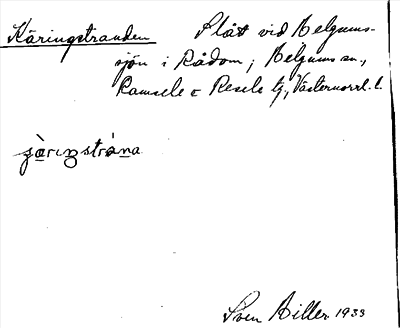 Käringstranden Slåt vid Helgums-
sjön i Rådom, Helgums sn.,
Ramsele o Resele tg, Västernorrl. l.
Sven Hiller 1933